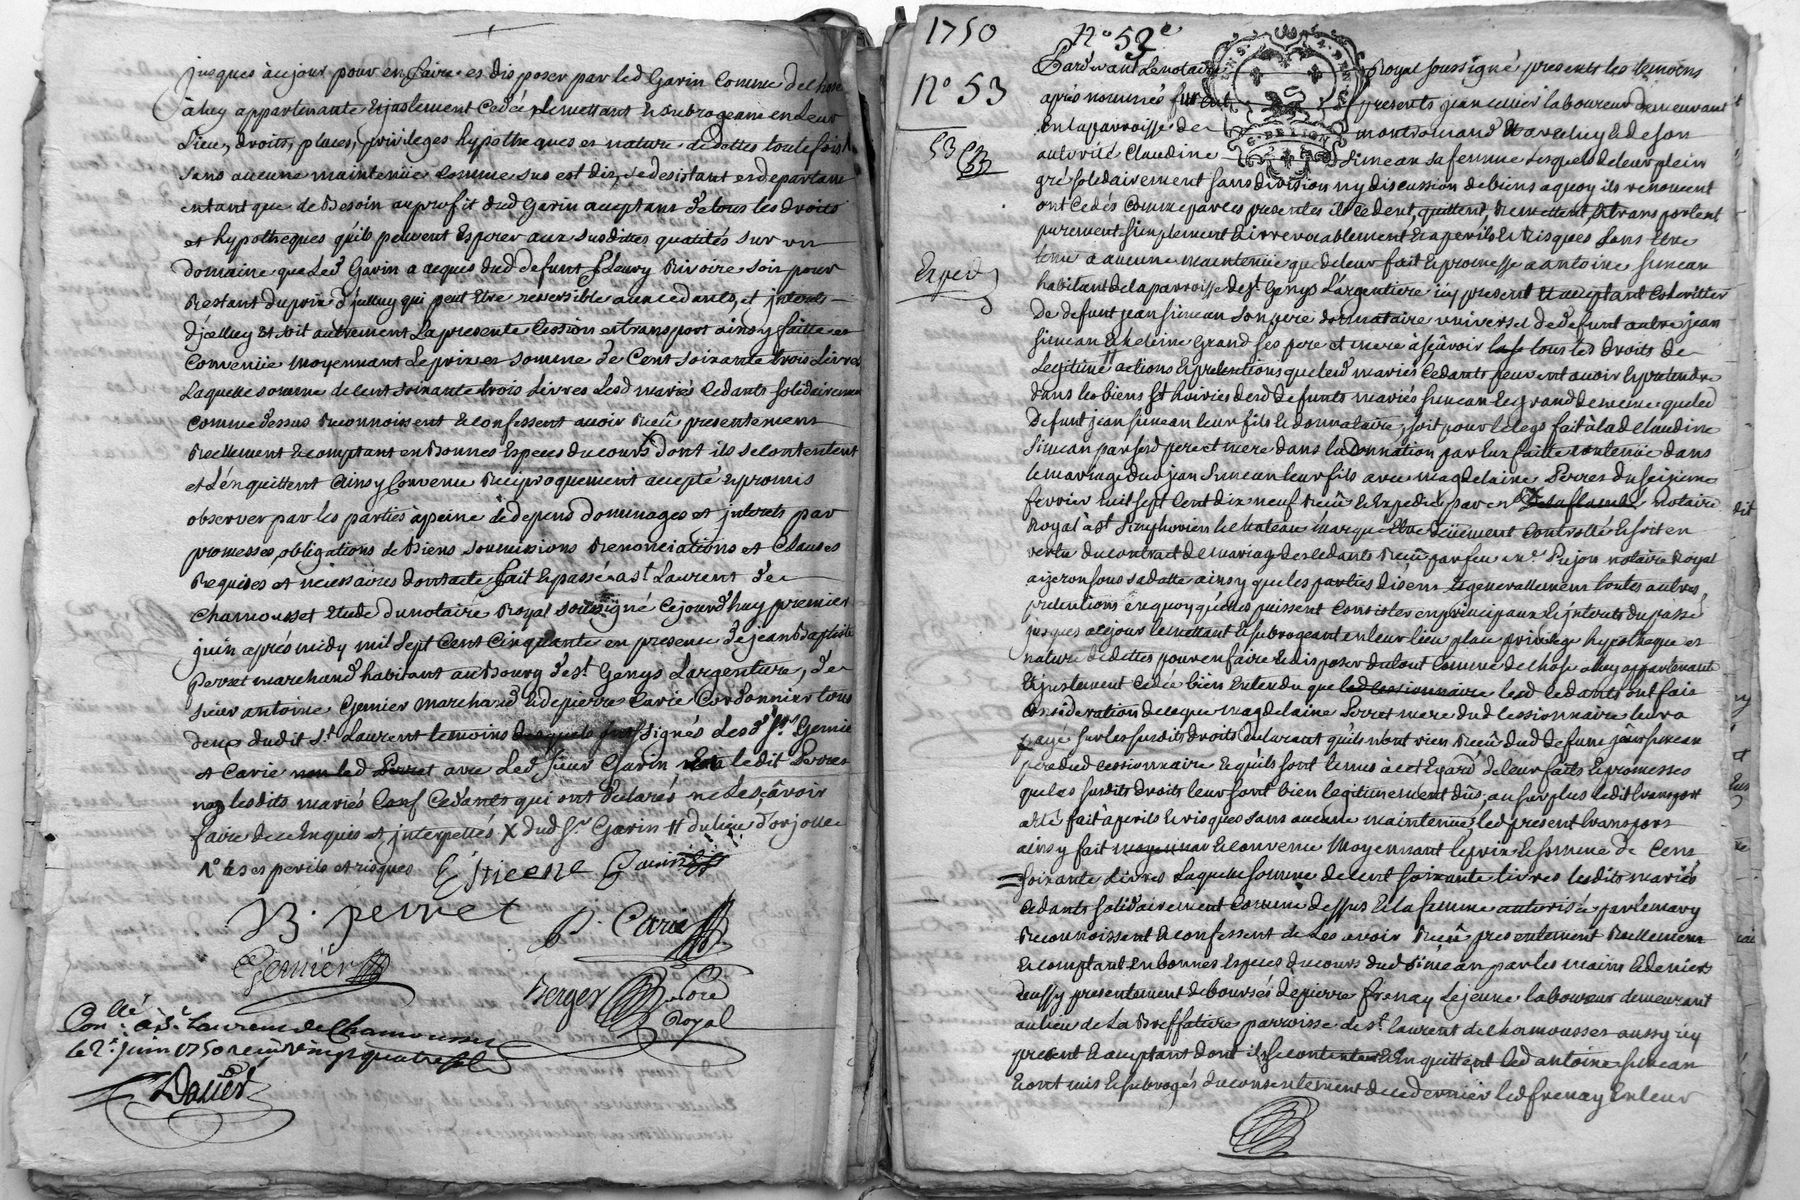 jusques à ce jour pour en faire et disposer par led Garin Comme de chose
à luy appartenante Et justement Cedée Le mettant et subrogeant en Leur
Lieu, droits, places, privileges hypotheques et nature de dettes toutefois
sans aucune maintenüe Comme sus est dit, se desistant et departant
en tant que de Besoin au profit dud Garin acceptant de tous les droits
et hypotheques qu'ils peuvent Esperer aux susdittes qualités sur un
domaine que Led Garin a acquis dud defunt fleury Rivoire soit pour
Restant du prix d'jcelluy qui peut Etre reversible aux cedants, et jnterets
djcelluy Et soit autrement La presente Cession et transport ainsy faitte et
Convenüe moyennant Le prix et somme de Cent soixante trois Livres
Laquelle somme de Cent soixante trois Livres Lesd mariés Cedants solidairement
Comme dessus Reconnoissent Et confessent avoir Reçû presentement
Reellement Et comptant en Bonnes Especes du cours dont ils se contentent
et L'en quittent Ainsy Convenu Reciproquement accepté Et promis
observer par les parties à peine de depens dommages et jnterets par
promesses, obligations de Biens soumissions Renonciations et Clauses
Requises et necessaires dont acte fait Et passé a st Laurent de
Chamousset Etude du notaire Royal soussigné Ce jourd'huy premier
juin après midy mil sept Cent Cinquante en presence de jean Baptiste
Perret marchand habitant au Bourg de st. Genys L'argentiere, de
sieur antoine Gemier marchand Et de pierre Carie Cordonnier tous
deux dudit st. Laurent temoins desquels ont signés Lesd Srs Gemier
et Carie non led Perret avec Led sieur Garin Et ledit Perret
non lesdits mariés Cedants qui ont declarés ne Le sçavoir
faire de ce Enquis et jnterpellés X dud Sr Garin # du lieu d'orjolle
et ses perils et risques
Etieene Garin
J B. perret P. Carie
Gemier
Berger notre Royal
Conllé à St Laurent de Chamousset
le 2e juin 1750 reçu vingt quatre sols
Douer
1750
No 53
53
Exped
No 52e
Pardevant Le notaire Royal soussigné presents les temoins
après nommés furent presents jean laboureur demeurant
en la parroisse de montromand Et de luy Et de son
autorité Claudine Simean sa femme Lesquels de leur plein
gré solidairement sans division ny discussion de biens a quoy ils renoncent
ont Cedés Comme par ces presentes ils Cedent, quittent, Remettent, Et transportent
purement simplement Et irrevocablement Et a perils Et risques sans Etre
tenu a aucune maintenüe que de leur fait Et promesse a antoine simean
habitant de la parroisse de st Genys L'argentiere icy present Et acceptant Coheritier
de defunt jean simean son pere donnataire universel de defunt autre jean
simean Et heleine Grand ses pere et mere a sçavoir tous les droits de
Legitime actions Et pretentions que lesd mariés Cedants peuvent avoir Et pretendre
dans les biens Et hoiries desd defunts mariés simean Et grand de meme que led
Defunt jean simean leur fils Et donnataire, soit pour le legs fait à lad Claudine
Simean par sesd pere et mere dans la Donnation par eux faitte contenüe dans
le mariage dud jean simean leur fils avec magdelaine Perret du seizieme
fevrier mil sept Cent dix neuf Reçû Et Expedié par notaire
Royal à st Simphorien le chateau Etre düement Controllé Et soit en
vertu du contract de mariage des cedants Reçu par feu me Pujon notaire Royal
aizeron sous sa datte ainsy que les parties disent Et generallement toutes autres
pretentions en quoy qu'elles puissent Consister en principaux Et jnterets du passé
jusques a ce jour le mettant Et subrogeant en leur lieu place privilege hypotheque et
nature de dettes pour en faire Et disposer du tout Comme de chose a luy appartenante
Et justement Cedée bien Entendu que led cessionnaire lesd cedants ont fait
Consideration de ce que magdelaine Perret mere dud Cessionnaire leur a
payé sur les susdits droits declarant qu'ils n'ont rien Reçû dud defunt jean simean
pere dud cessionnaire Et qu'ils sont tenus à cet Egard de leur faits Et promesses
que les susdits droits leur sont bien legitimement dûs, au surplus ledit transport
a été fait à perils Et risques sans aucune maintenüe, led present transport
ainsy fait moyennant Et convenu Moyennant Le prix Et somme de Cent
soixante Livres Laquelle somme de Cent soixante livres lesdits mariés
Cedants solidairement Comme dessus Et la femme autorisée par le mary
Reconnoissent Et confessent de Les avoir Reçû presentement Reellement
Et comptant En bonnes Especes du cours dud Simean par les mains Et deniers
d'jcy presentement deboursés de pierre frenay Le jeune laboureur demeurant
au lieu de la Breffatiere parroisse de st. laurent de chamousset aussy icy
present Et acceptant dont ils se contentent Et En quittent led antoine simean
Et ont mis Et subrogés du consentement de ce dernier led frenay En leur